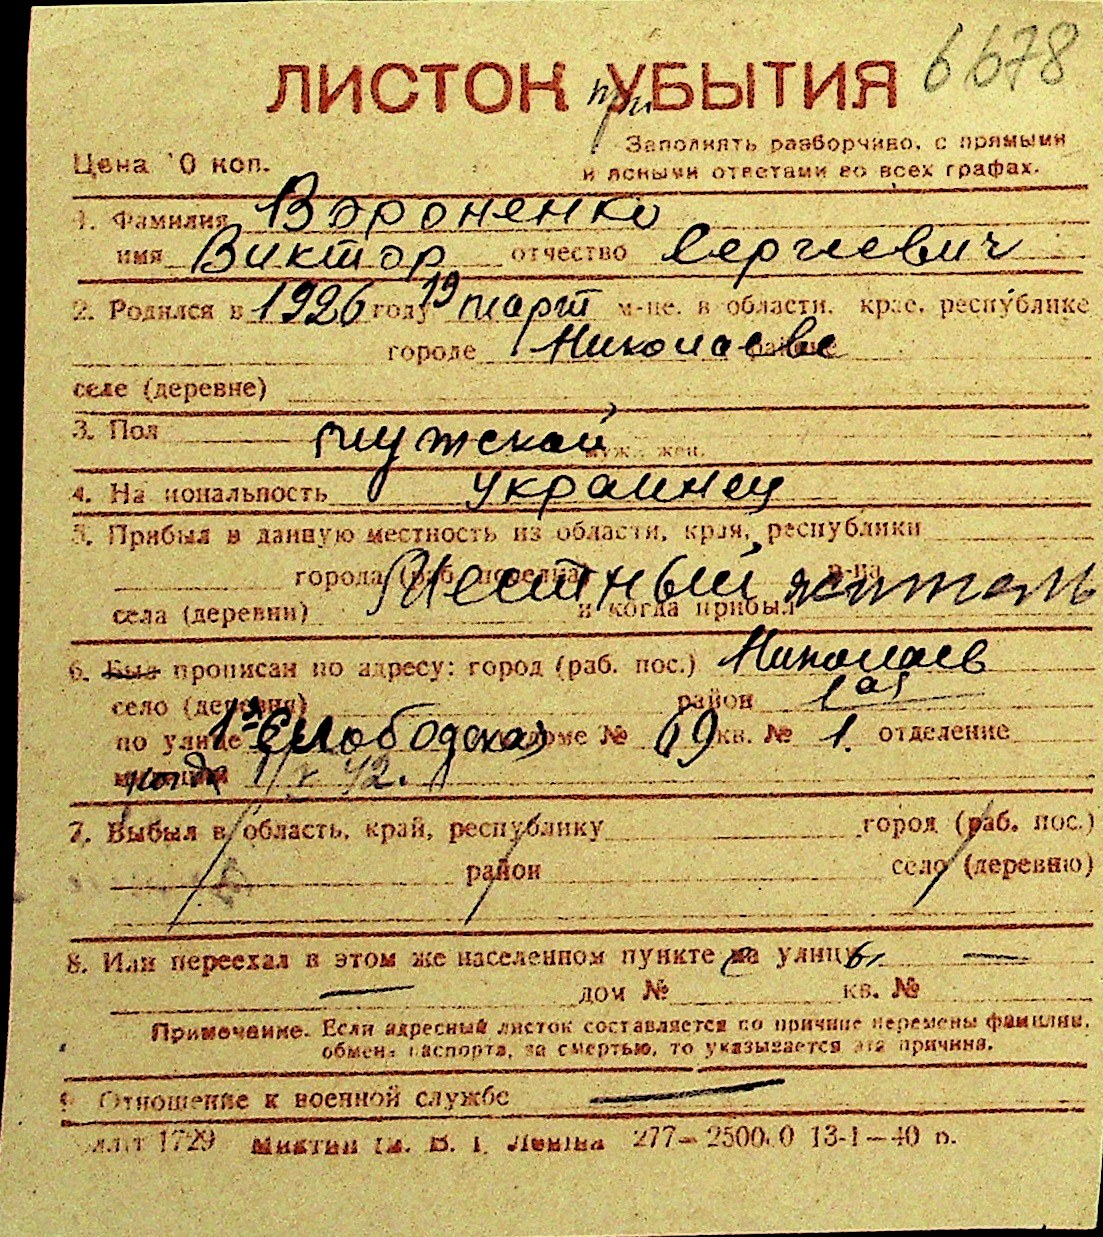 6678
ЛИСТОК при УБЫТИЯ
Заполнять разборчиво, с прямыми
Цена 10 коп. и ясными ответами во всех графах.
1. Фамилия Вороненко
имя Виктор отчество Сергиевич
2. Родился в 1926 году 19 март м-це, в области, крае, республике
городе Николаеве районе
селе (деревне)
3. Пол мужской муж., жен.
4. Национальность украинец
5. Прибыл в данную местность из области, края, республики
города (раб. поселка) Местный р-на житель
села (деревни) и когда прибыл
6. Был прописан по адресу: город (раб. пос.) Николаев
село (деревня) район 1ый
по улице 1я Слободская доме № 69 кв. № 1. отделение
милиции когда 42.
7. Выбыл в область, край, республику город (раб. пос.)
район село (деревню)
8. Или переехал в этом же населенном пункте на улицу —
— дом № кв. №
Примечание. Если адресный листок составляется по причине перемены фамилии,
обмена паспорта, за смертью, то указывается эта причина.
9. Отношение к военной службе —
1729 Ленина 277—2500.0 13-1—40 р.